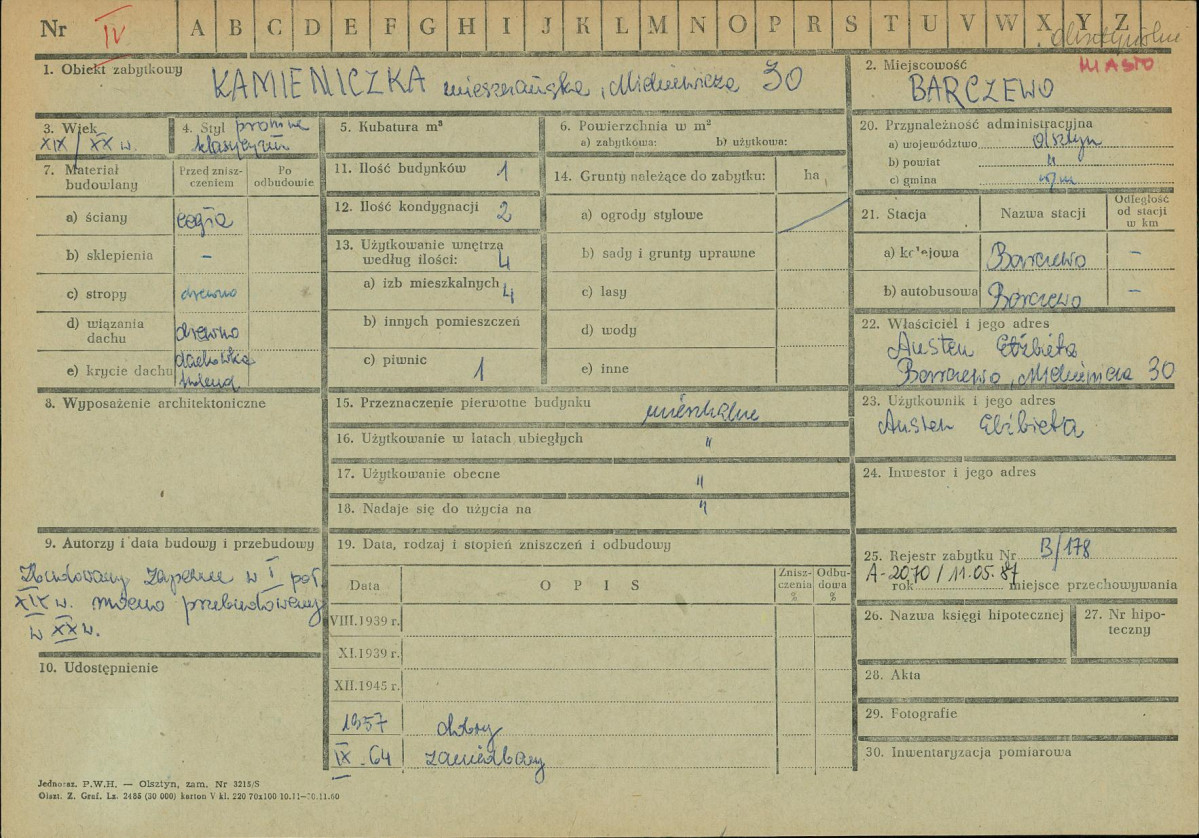 Nr IV A B C D E F G H I J K L M N O P R S T U V W X Y Z
1. Obiekt zabytkowy KAMIENICZKA mieszczańska, Mickiewicza 30
2. Miejscowość MIASTO
BARCZEWO
3. Wiek
XIX/XX w.
4. Styl prowinc
klasycyzm
5. Kubatura m³
6. Powierzchnia w m²
a) zabytkowa: b) użytkowa:
7. Materiał budowlany
Przed zniszczeniem
Po odbudowie
a) ściany cegła
b) sklepienia –
c) stropy drewno
d) wiązania
dachu drewno
e) krycie dachu dachówka
11. Ilość budynków 1
12. Ilość kondygnacji 2
13. Użytkowanie wnętrza
według ilości: 4
a) izb mieszkalnych 4
b) innych pomieszczeń
c) piwnic 1
14. Grunty należące do zabytku: ha
a) ogrody stylowe
b) sady i grunty uprawne
c) lasy
d) wody
e) inne
20. Przynależność administracyjna
a) województwo Olsztyn
b) powiat "
c) gmina
21. Stacja
Nazwa stacji
Odległość
od stacji
w km
a) kolejowa Barczewo –
b) autobusowa Barczewo –
22. Właściciel i jego adres
Austen Elżbieta
Barczewo, Mickiewicza 30
8. Wyposażenie architektoniczne
15. Przeznaczenie pierwotne budynku mieszkalne
16. Użytkowanie w latach ubiegłych "
17. Użytkowanie obecne "
18. Nadaje się do użycia na "
23. Użytkownik i jego adres
Austen Elżbieta
24. Inwestor i jego adres
9. Autorzy i data budowy i przebudowy
Zbudowany zapewne w I poł.
XIX w. mocno przebudowany
w XX w.
10. Udostępnienie
19. Data, rodzaj i stopień zniszczeń i odbudowy
Data
OPIS
Znisz-
czenia
%
Odbu-
dowa
%
VIII.1939 r.
XI.1939 r.
XII.1945 r.
1957 dobry
IX.64 zaniedbany
25. Rejestr zabytku Nr B/178
A-2070/11.05.87
rok miejsce przechowywania
26. Nazwa księgi hipotecznej
27. Nr hipo-
teczny
28. Akta
29. Fotografie
30. Inwentaryzacja pomiarowa
Jednoraz. P.W.H. — Olsztyn, zam. Nr 3215/S
Olszt. Z. Graf. Lz. 2485 (30 000) karton V kl. 220 70x100 10.11—30.11.60